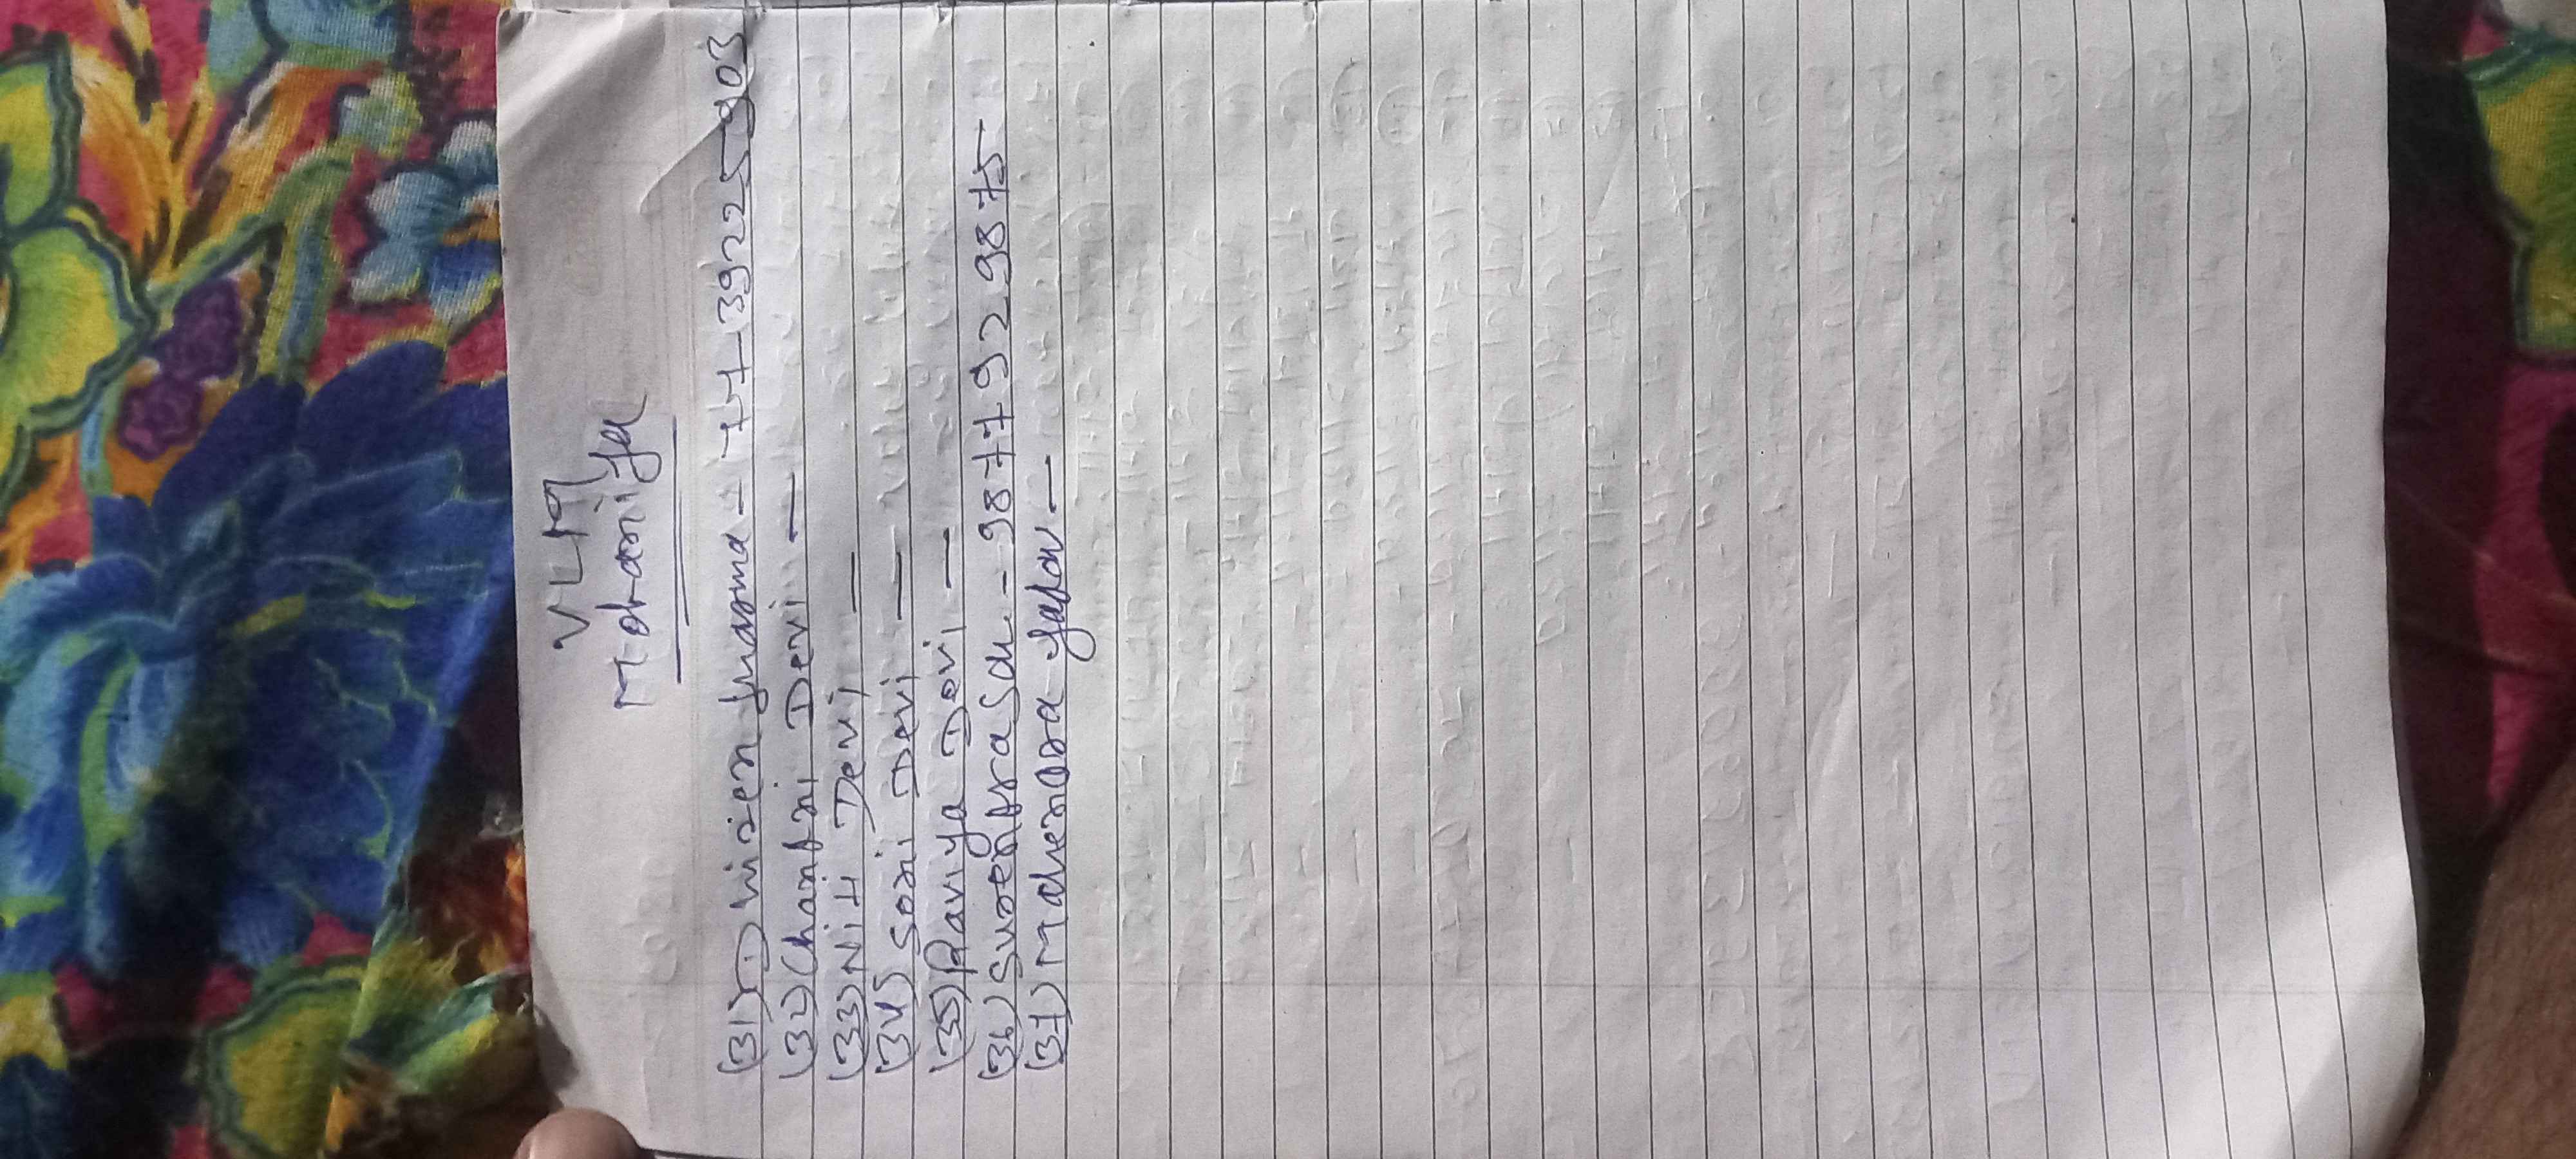 VLM
Mohaniya
(31) Dhiren kumar - 7739225903
(32) Chantni Devi —
(33) Niti Devi —
(34) Soni Devi —
(35) Raviya Devi —
(36) Surentra Sah - 9877929875
(37) Mahendra yadav —